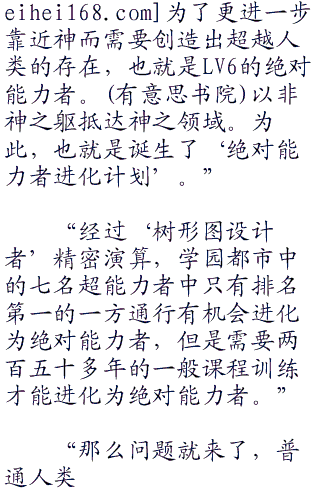 eihei168.com]为了更进一步
靠近神而需要创造出超越人
类的存在，也就是LV6的绝对
能力者。(有意思书院)以非
神之躯抵达神之领域。为
此，也就是诞生了‘绝对能
力者进化计划’。”
“经过‘树形图设计
者’精密演算，学园都市中
的七名超能力者中只有排名
第一的一方通行有机会进化
为绝对能力者，但是需要两
百五十多年的一般课程训练
才能进化为绝对能力者。”
“那么问题就来了，普
通人类